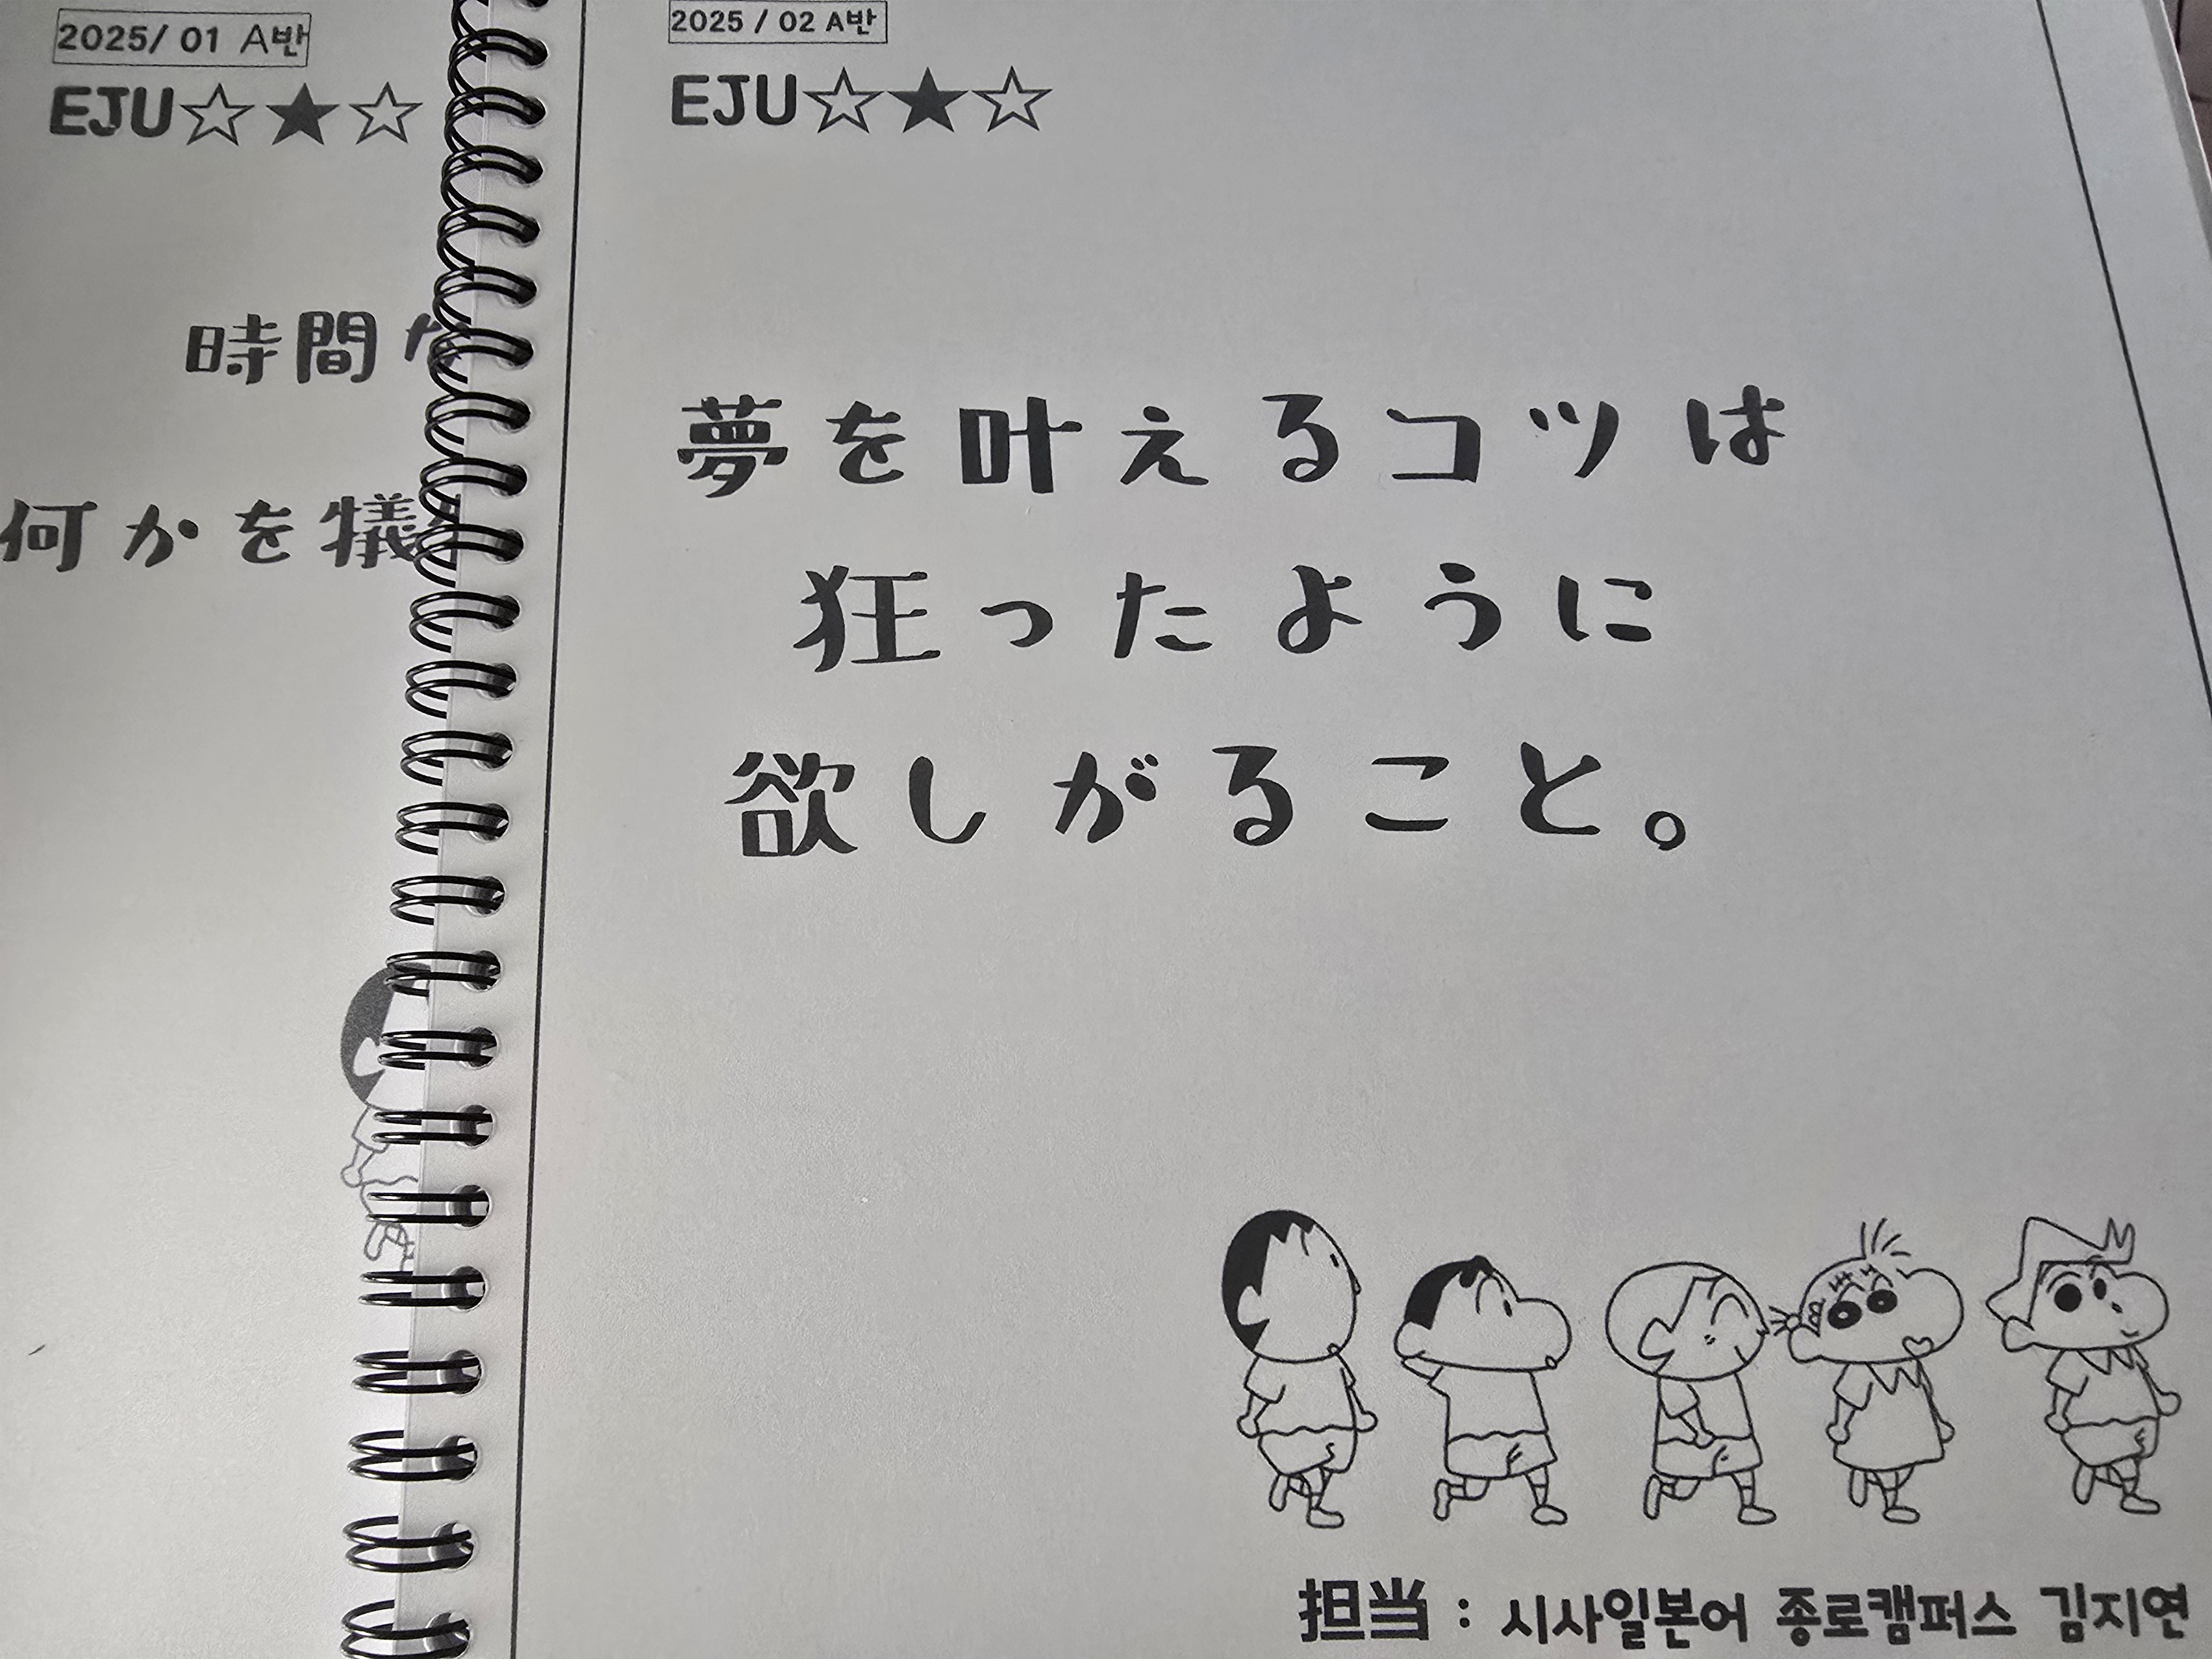 2025/ 01 A반
EJU☆★☆
時間
何かを犠
2025 / 02 A반
EJU☆★☆
夢を叶えるコツは
狂ったように
欲しがること。
担当 : 시사일본어 종로캠퍼스 김지연